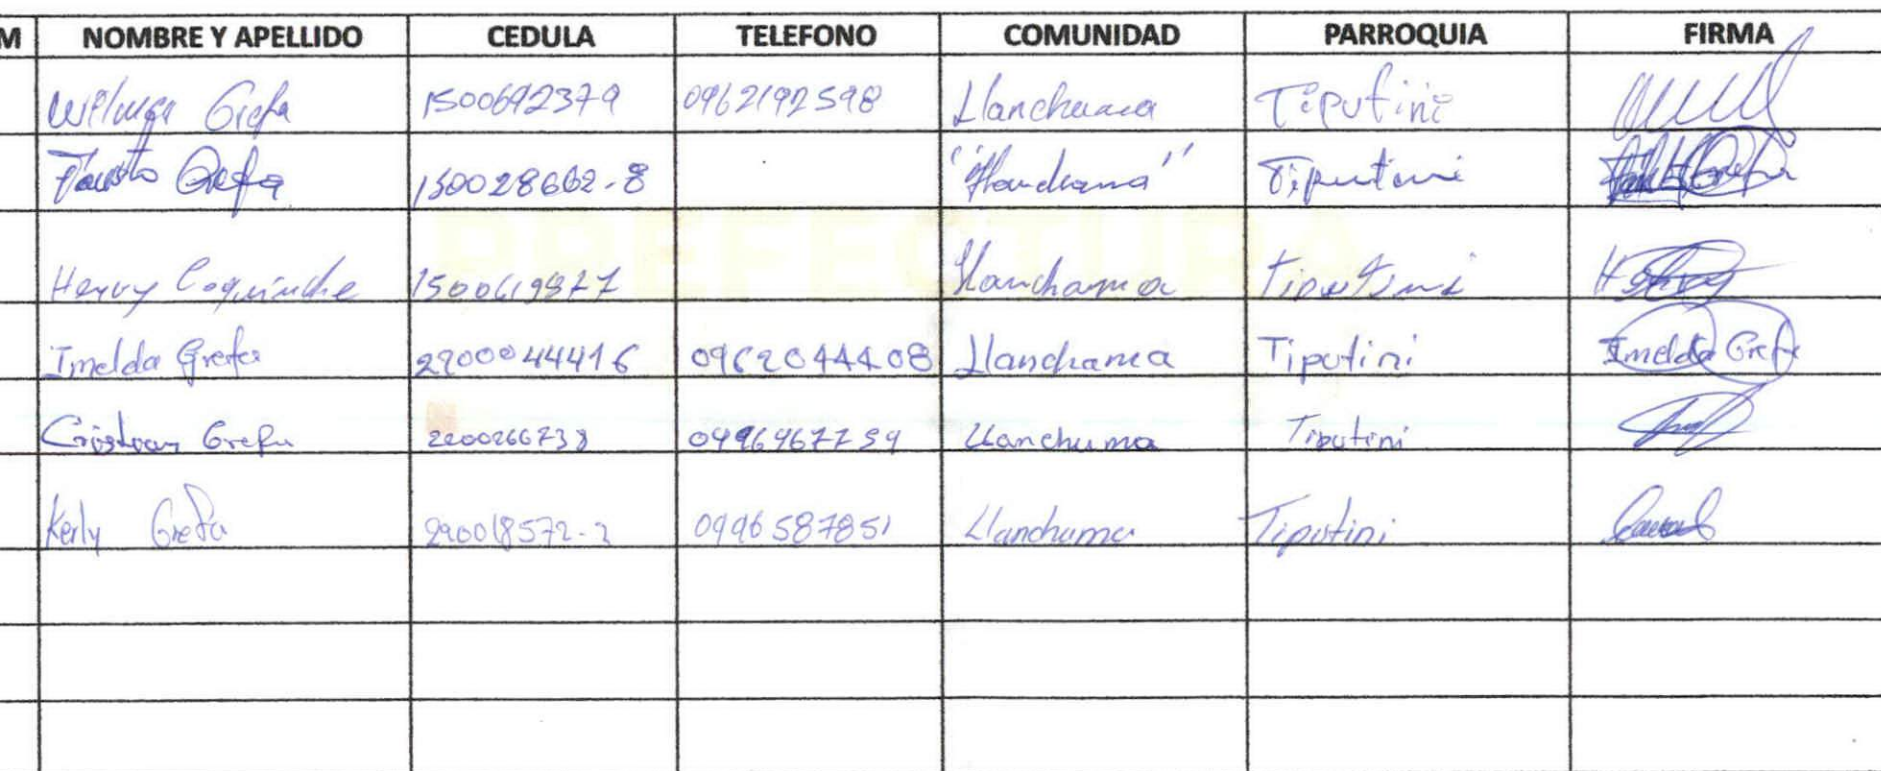 M NOMBRE Y APELLIDO CEDULA TELEFONO COMUNIDAD PARROQUIA FIRMA
Wilmer Grefa 1500692379 0962192598 Llanchama Tiputini
Fausto Grefa 150028662-8 "Llanchama" Tiputini
Henry Coquinche Llanchama Tiputini
Imelda Grefa 2200044416 0962044408 Llanchama Tiputini Imelda Grefa
Cristian Grefa 2200266738 Llanchama Tiputini
Kerly Grefa 220018572-2 0996587851 Llanchama Tiputini
PREFECTURA